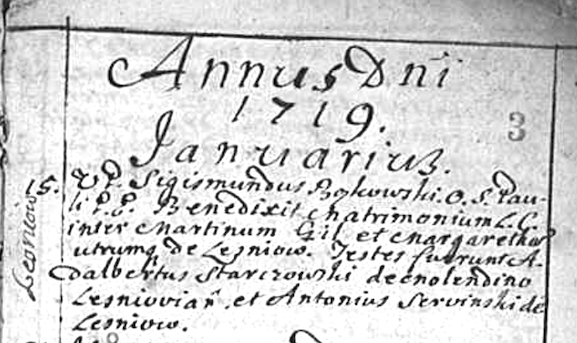 Annus Dnĩ
1719.
3
Januarius.
Leoniow
15. V. P. Sigismundus Bykowski. O. S. Pau-
li P. E. Benedixit Matrimonium L. C.
inter Martinum Gil et Margaretham
utrumq de Lesniow. Testes fuerunt A-
dalbertus Starczowski de Molendino
Lesniovian. et Antonius Serwinski de
Lesniow.